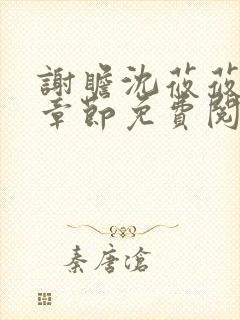 謝瞻沈莜莜
章節免費閱
秦唐滄